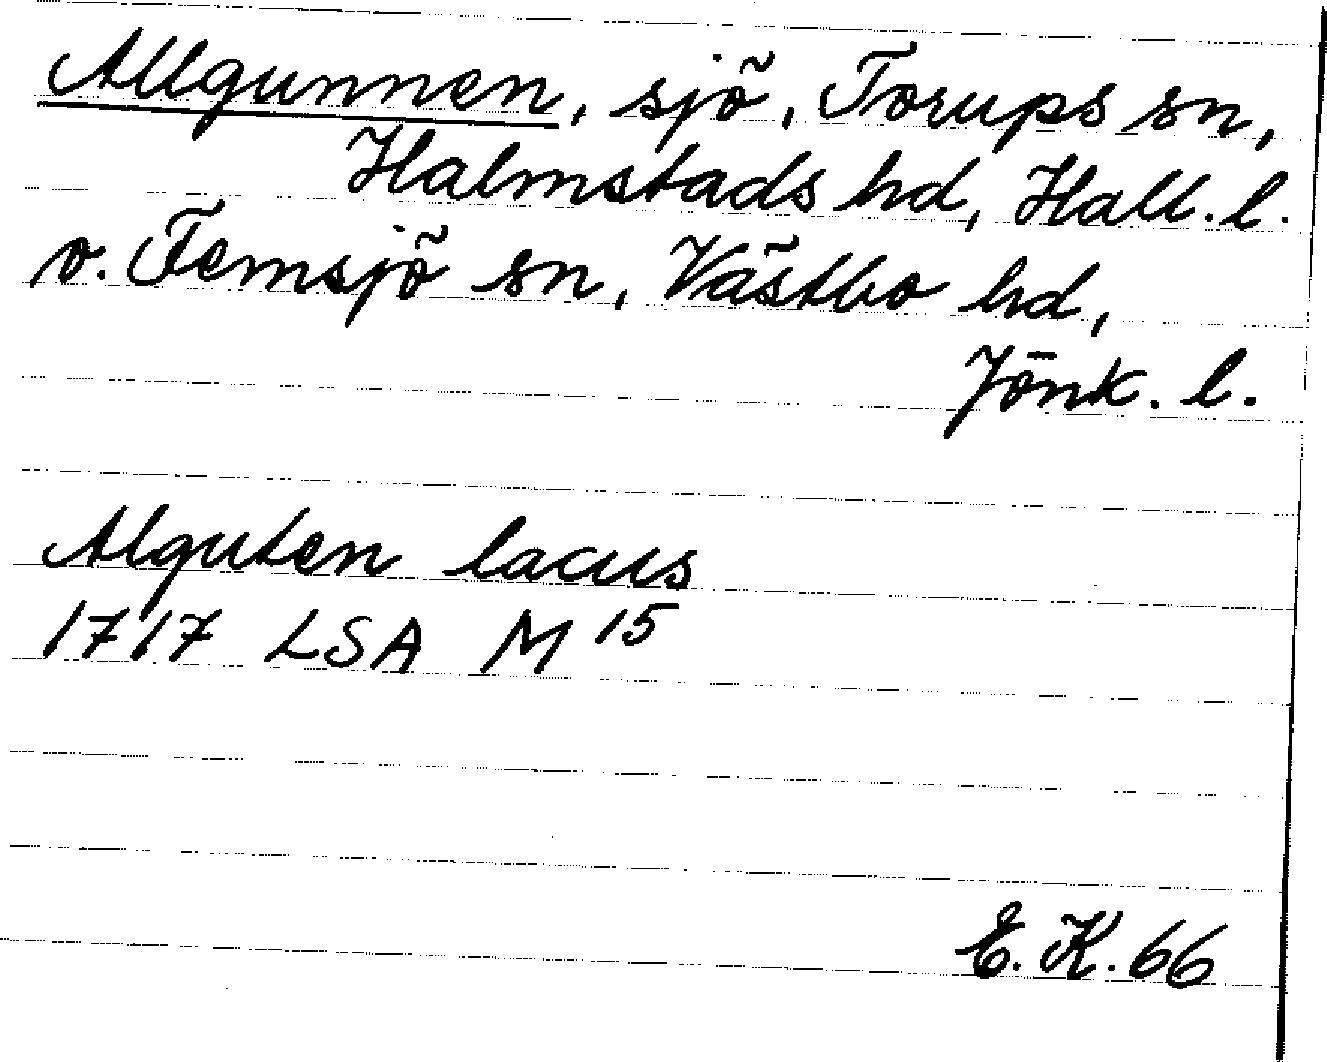 Allgunnen, sjö, Torups sn,
Halmstads hd, Hall. l.
o. Femsjö sn, Västbo hd,
Jönk. l.
Alguten lacus
1717 LSA M 15
E. K. 66